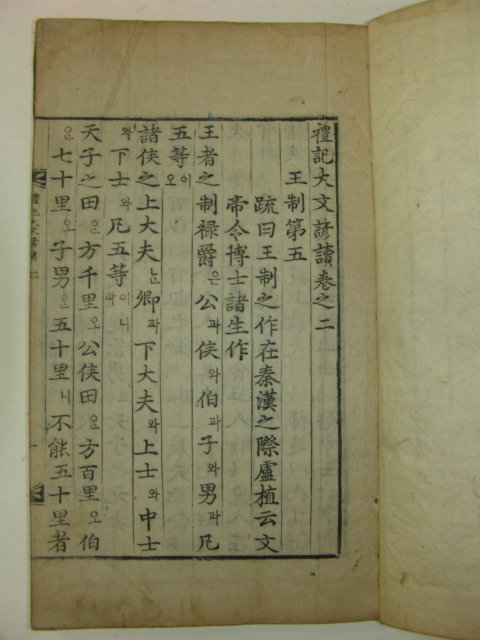 禮記大文諺讀卷之二
王制第五
疏曰王制之作在秦漢之際盧植云文
帝令博士諸生作
王者之制禄爵은公과侯와伯과子와男과凡
五等이오
諸侯之上大夫는卿과下大夫와上士와中士
와下士와凡五等이니라
天子之田은方千里오公侯田은方百里오伯
은七十里오子男은五十里니不能五十里者
禮記大文諺讀 二